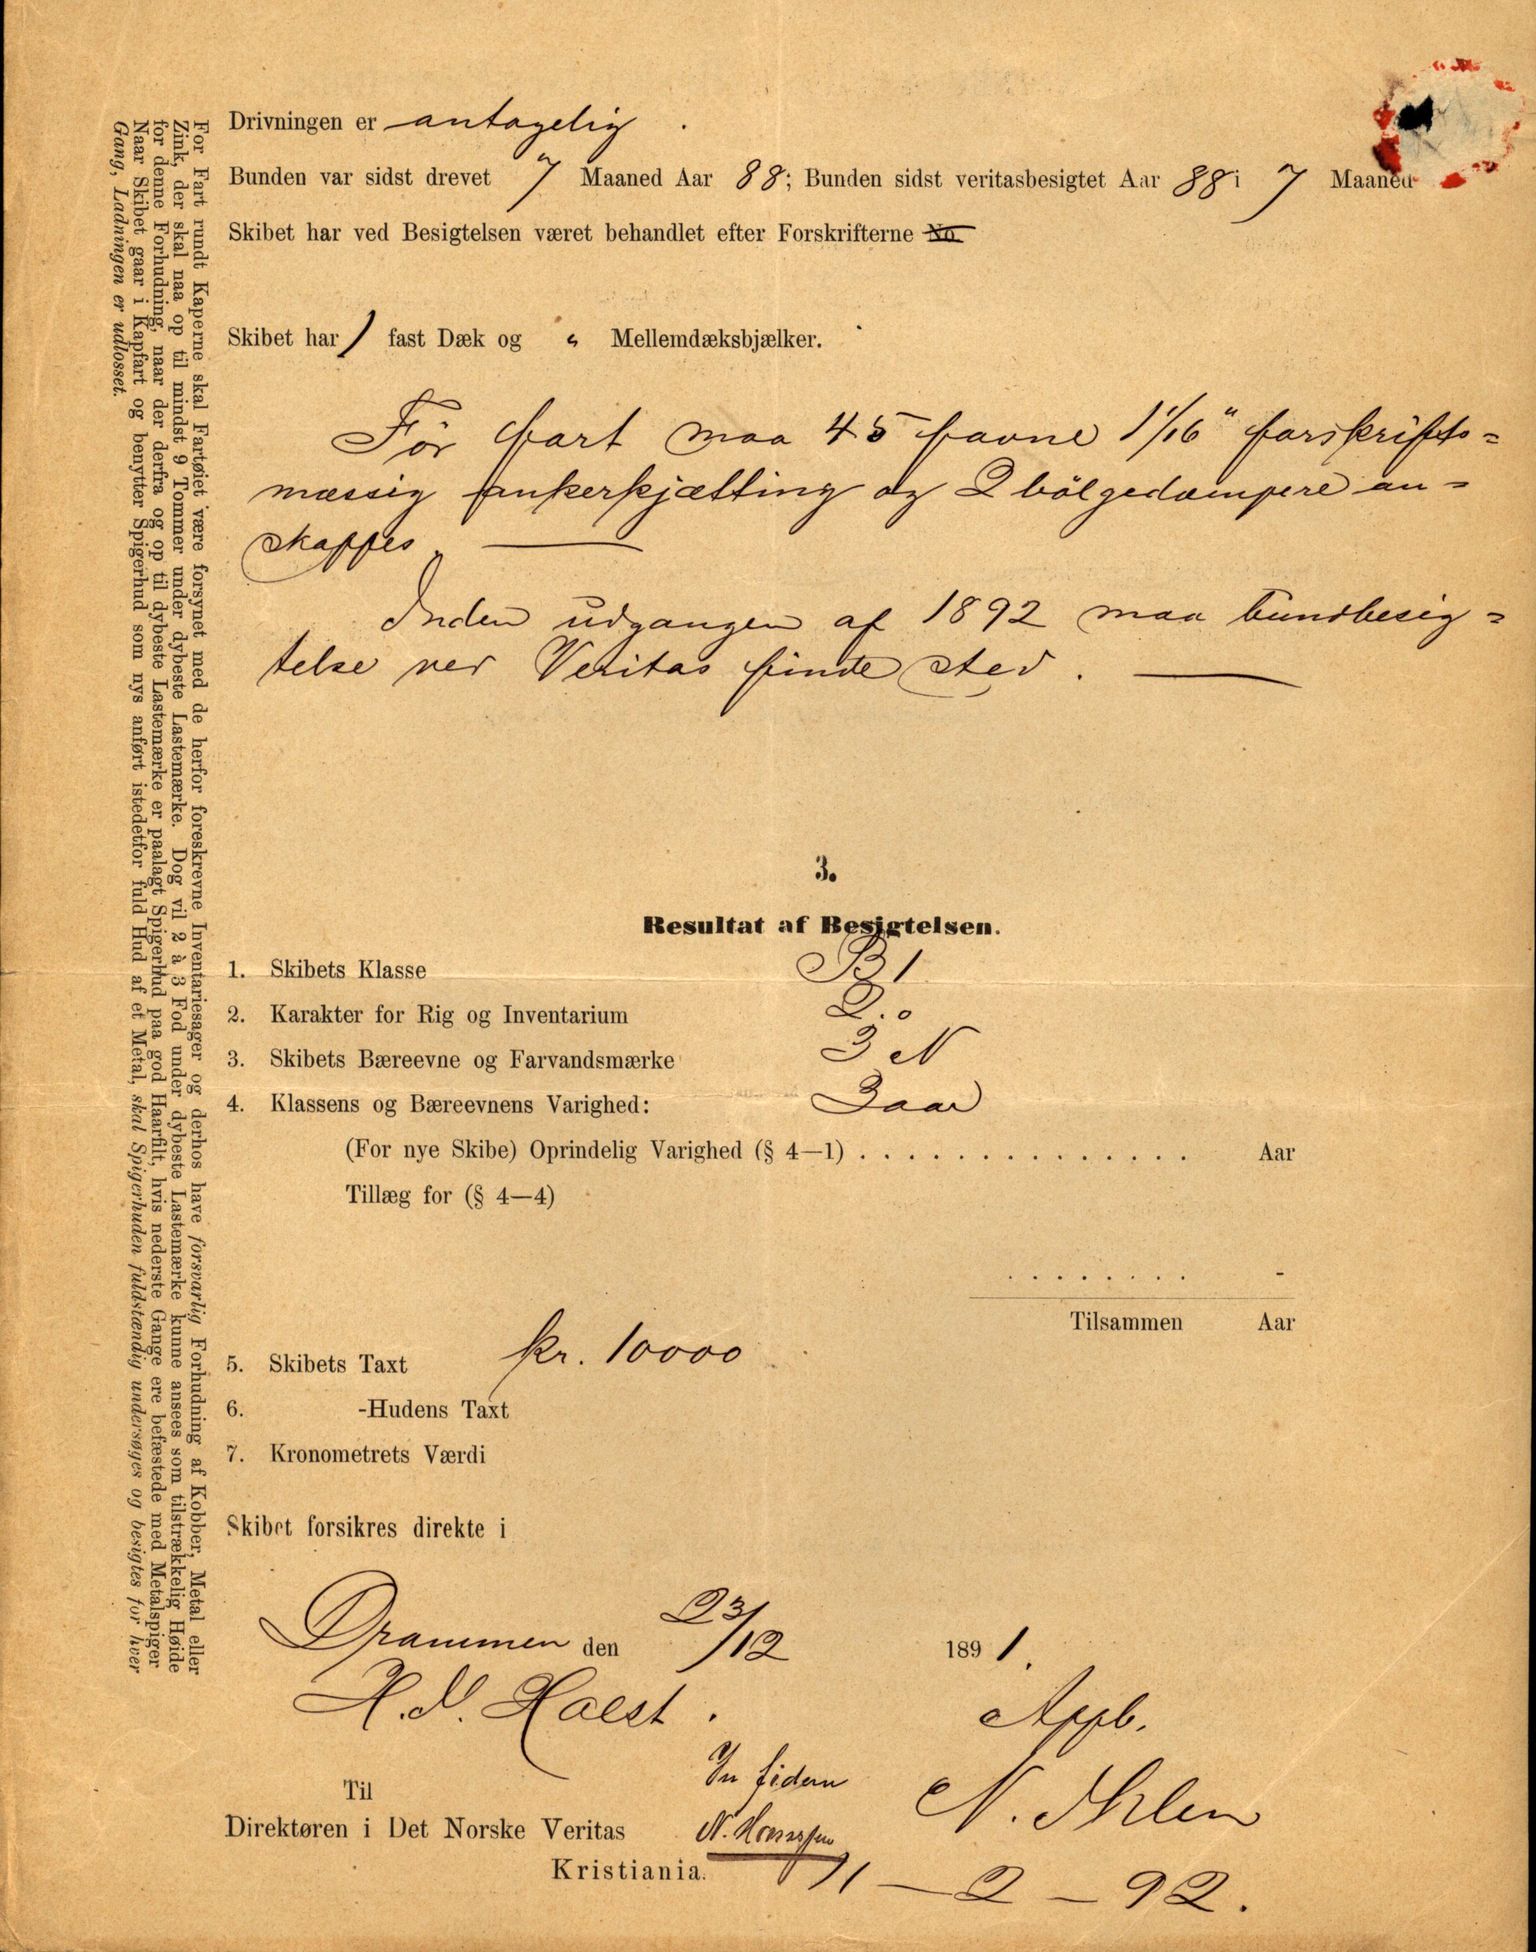 Drivningen er antagelig .
Bunden var sidst drevet 7 Maaned Aar 88; Bunden sidst veritasbesigtet Aar 88 i 7 Maaned
Skibet har ved Besigtelsen været behandlet efter Forskrifterne No.
Skibet har 1 fast Dæk og " Mellemdæksbjælker.
Før fart maa 45 favne 1 1/16" forskrifts=
mæssig ankerkjætting og 2 bölgedæmpere an=
skaffes.
Inden udgangen af 1892 maa bundbesig=
telse ved Veritas finde sted.
3.
Resultat af Besigtelsen.
1. Skibets Klasse B 1
2. Karakter for Rig og Inventarium 2.
3. Skibets Bæreevne og Farvandsmærke 3 N
4. Klassens og Bæreevnens Varighed: 3 aar
(For nye Skibe) Oprindelig Varighed (§ 4—1) . . . . . . . . . . . . . . . Aar
Tillæg for (§ 4—4)
. . . . . . . . -
Tilsammen Aar
5. Skibets Taxt kr. 10000
6. -Hudens Taxt
7. Kronometrets Værdi
Skibet forsikres direkte i
Drammen den 23/12 1891.
H. N. Holst.
Appb.
In fidem
N. Ihlen
Til
Direktøren i Det Norske Veritas
Kristiania.
11 — 2 — 92.
For Fart rundt Kaperne skal Fartøiet være forsynet med de herfor foreskrevne Inventariesager og derhos have forsvarlig Forhudning af Kobber, Metal eller
Zink, der skal naa op til mindst 9 Tommer under dybeste Lastemærke. Dog vil 2 à 3 Fod under dybeste Lastemærke kunne ansees som tilstrækkelig Høide
for denne Forhudning, naar der derfra og op til dybeste Lastemærke er paalagt Spigerhud paa god Haarfilt, hvis nederste Gange ere befæstede med Metalspiger
Naar Skibet gaar i Kapfart og benytter Spigerhud som nys anført istedetfor fuld Hud af et Metal, skal Spigerhuden fuldstændig undersøges og besigtes for hver
Gang, Ladningen er udlosset.